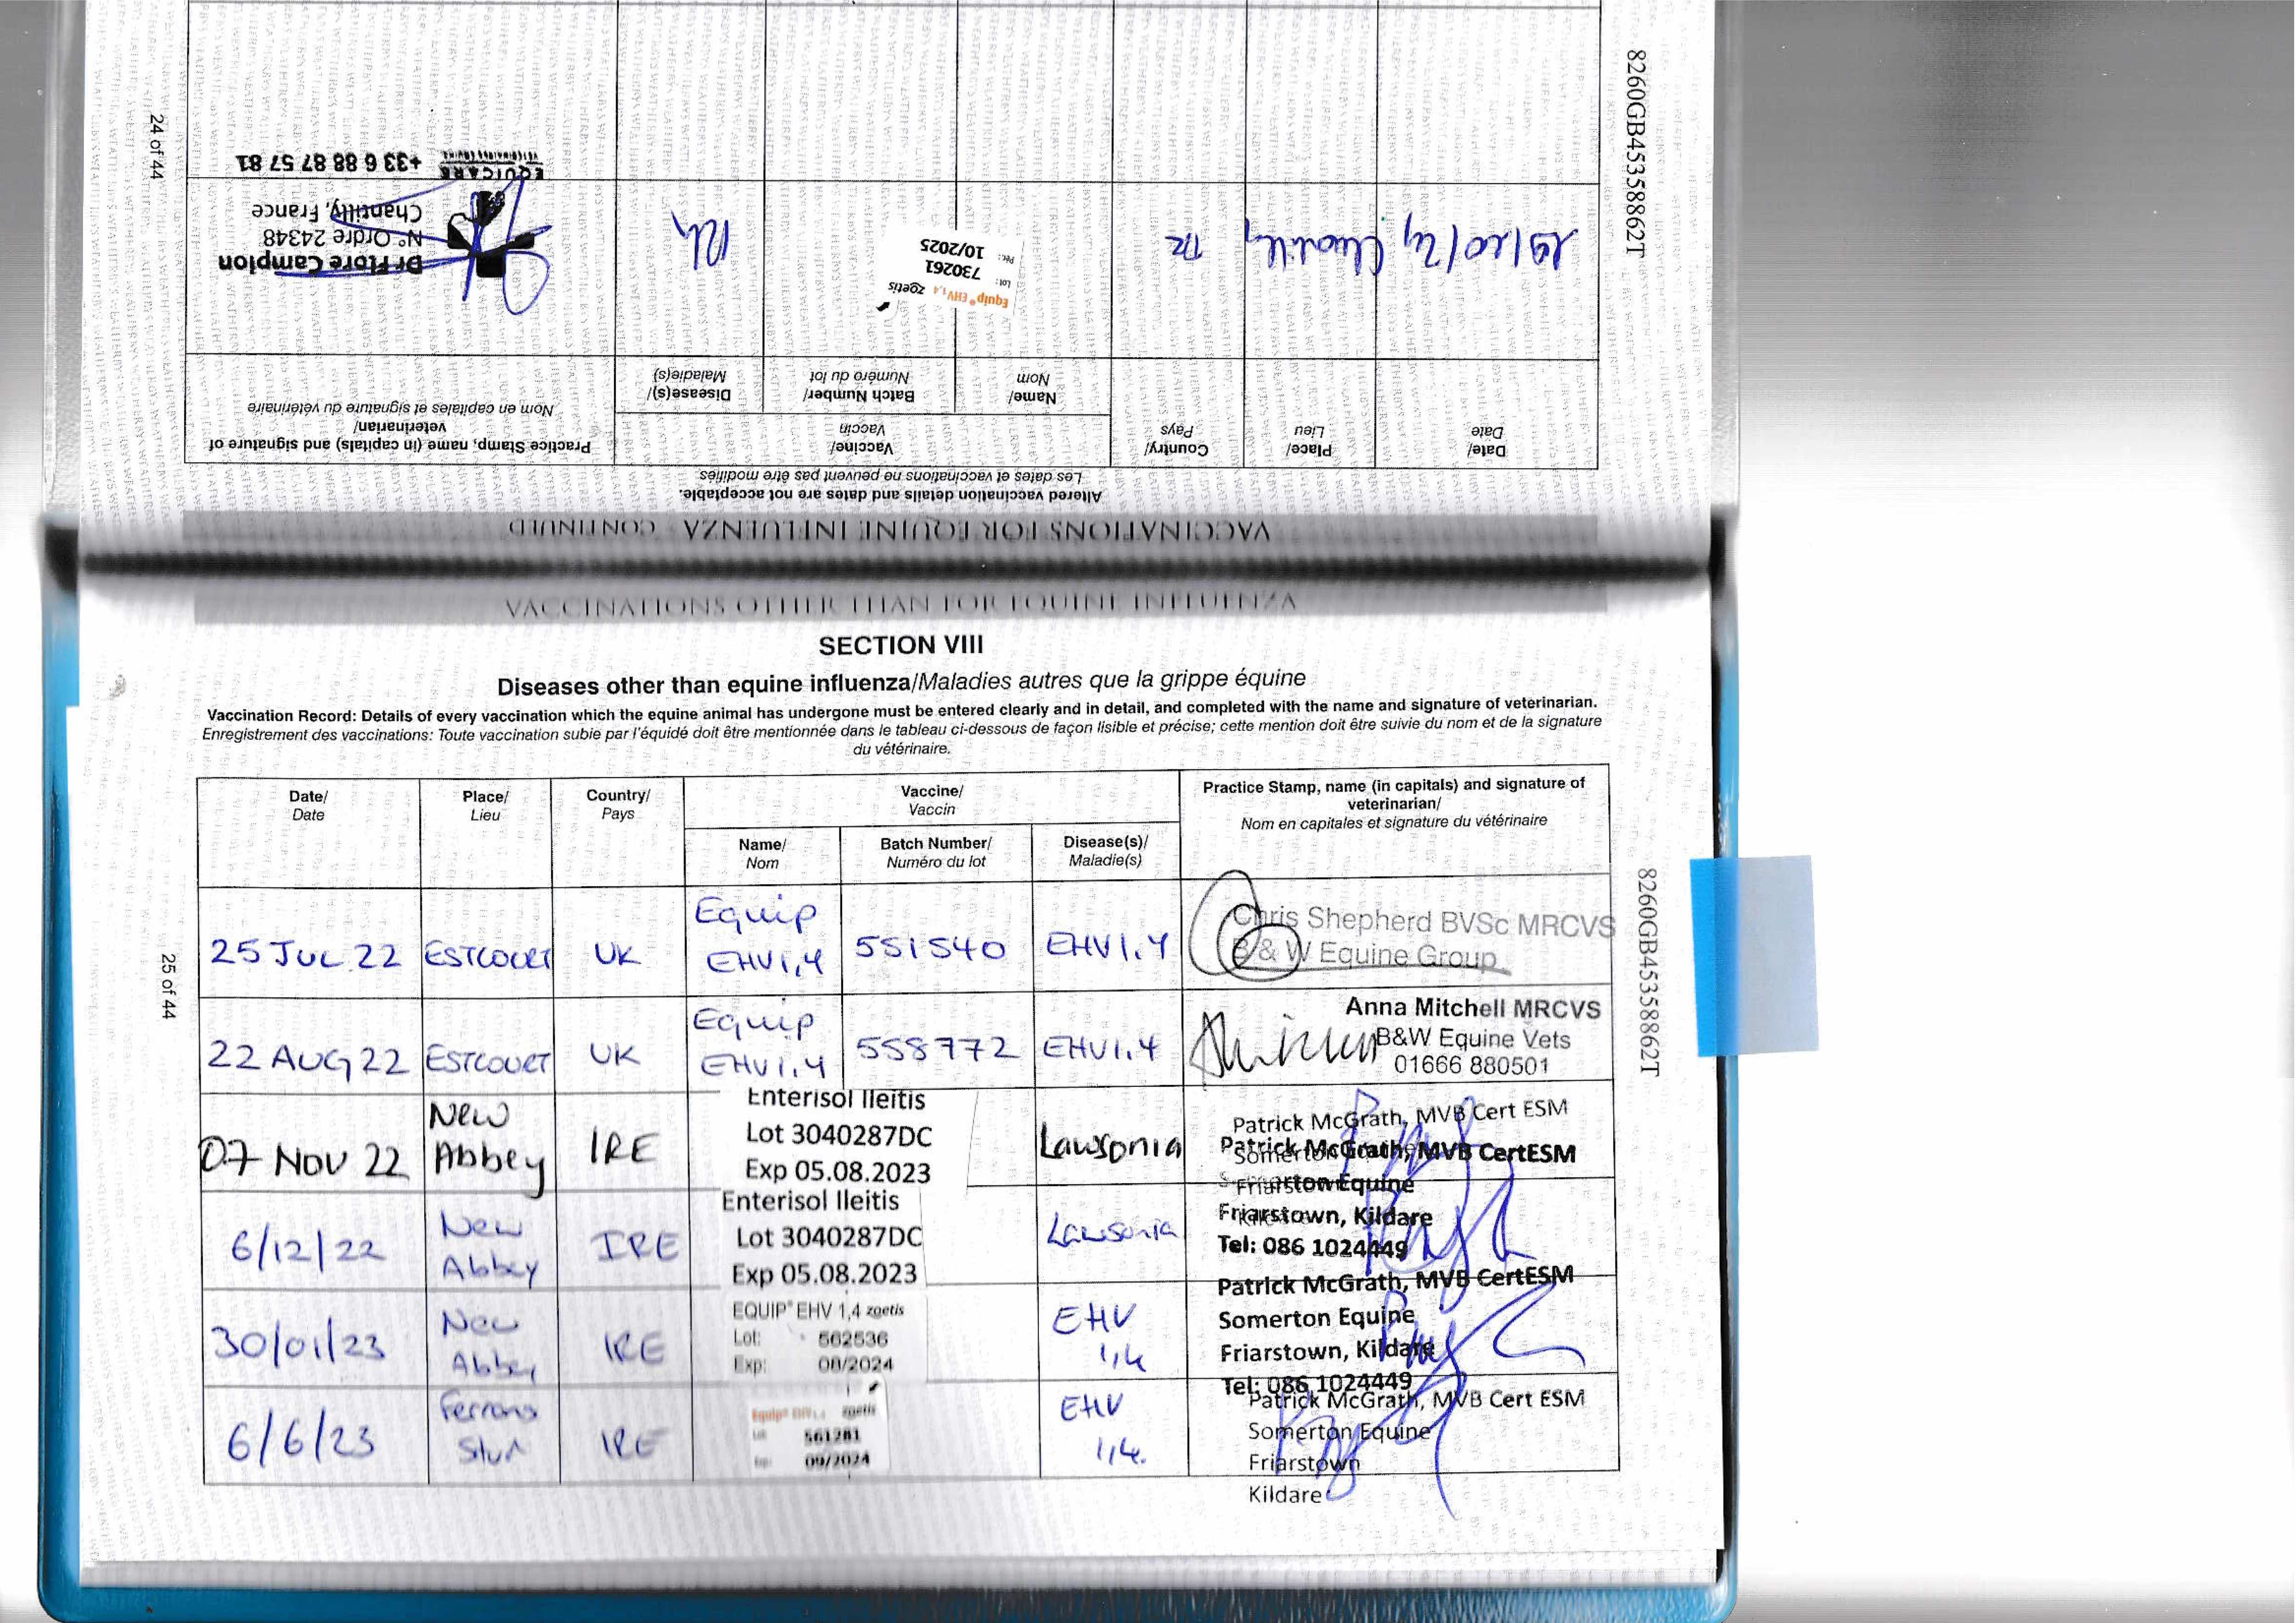 8260GB45358862T
24 of 44
VACCINATIONS FOR EQUINE INFLUENZA - CONTINUED
Altered vaccination details and dates are not acceptable.
Les dates et vaccinations ne peuvent pas être modifiés
Date/
Date
Place/
Lieu
Country/
Pays
Vaccine/
Vaccin
Name/
Nom
Batch Number/
Numéro du lot
Disease(s)/
Maladie(s)
Practice Stamp, name (in capitals) and signature of
veterinarian/
Nom en capitales et signature du vétérinaire
Equip® EHV1,4 zoetis
Lot: 730261
Per.: 10/2025
Dr Flore Campion
N° Ordre 24348
Chantilly, France
EQUICARE
+33 6 88 87 57 81
VACCINATIONS OTHER THAN FOR EQUINE INFLUENZA
SECTION VIII
Diseases other than equine influenza/Maladies autres que la grippe équine
Vaccination Record: Details of every vaccination which the equine animal has undergone must be entered clearly and in detail, and completed with the name and signature of veterinarian.
Enregistrement des vaccinations: Toute vaccination subie par l'équidé doit être mentionnée dans le tableau ci-dessous de façon lisible et précise; cette mention doit être suivie du nom et de la signature
du vétérinaire.
Date/
Date
Place/
Lieu
Country/
Pays
Vaccine/
Vaccin
Name/
Nom
Batch Number/
Numéro du lot
Disease(s)/
Maladie(s)
Practice Stamp, name (in capitals) and signature of
veterinarian/
Nom en capitales et signature du vétérinaire
25 JUL 22 ESTCOURT UK Equip EHV1,4 551540 EHV1,4
Chris Shepherd BVSc MRCVS
B & W Equine Group
22 AUG 22 ESTCOURT UK Equip EHV1,4 558772 EHV1,4
Anna Mitchell MRCVS
B&W Equine Vets
01666 880501
07 NOV 22 New Abbey IRE
Enterisol Ileitis
Lot 3040287DC
Exp 05.08.2023
Lawsonia
Patrick McGrath, MVB Cert ESM
Somerton
Friarstown
6/12/22 New Abbey IRE
Enterisol Ileitis
Lot 3040287DC
Exp 05.08.2023
Lawsonia
Patrick McGrath, MVB CertESM
Somerton Equine
Friarstown, Kildare
Tel: 086 1024449
30/01/23 New Abbey IRE
EQUIP® EHV 1,4 zoetis
Lot: 562536
Exp: 08/2024
EHV 1,4
Patrick McGrath, MVB CertESM
Somerton Equine
Friarstown, Kildare
Tel: 086 1024449
6/6/23 Ferrans Stud IRE
Equip® EHV1,4 zoetis
561281
09/2024
EHV 1,4.
Patrick McGrath, MVB Cert ESM
Somerton Equine
Friarstown
Kildare
25 of 44
8260GB45358862T